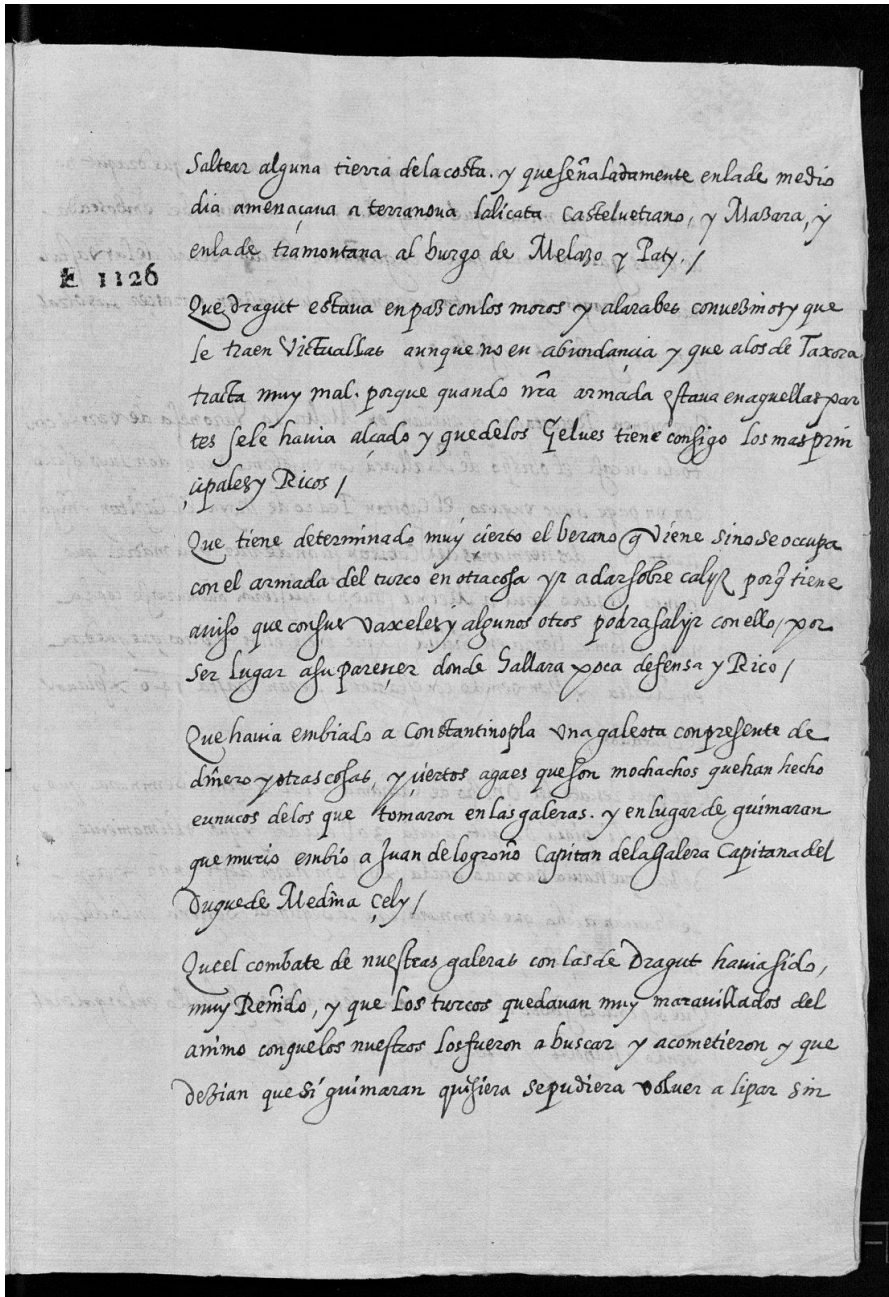 Saltear alguna tierra de la costa. y que señaladamente en la de medio
dia amenaçava a terranova lalicata Castelvetrano, y Mazara, y
en la de tramontana al burgo de Melazo y Paty. /
E 1126
Que dragut estava en paz con los moros y alarabes convezinos y que
se traen Victuallas aunque no en abundançia y que a los de Taxora
tracta muy mal. porque quando nrã armada estava en aquellas par
tes se le havia alçado y que de los Gelves tiene consigo los mas prin
çipales y Ricos /
Que tiene determinado muy cierto el berano q̃ viene sino se occupa
con el armada del turco en otra cosa yr a dar sobre calyz porq̃ tiene
aviso que con sus vaxeles y algunos otros podra salyr con ello, por
ser lugar a su paresçer donde hallara poca defensa y Rico /
Que havia embiado a Constantinopla una galeota con presente de
dinero y otras cosas, y çiertos agaes que son mochachos que han hecho
eunucos de los que tomaron en las galeras. y en lugar de guimaran
que murio embio a Juan de logroño Capitan de la Galera Capitana del
Duque de Medina Çely /
Quel combate de nuestras galeras con las de Dragut havia sido,
muy Reñido, y que los turcos quedavan muy maravillados del
animo con que los nuestros los fueron a buscar y acometieron y que
dezian que si guimaran quisiera se pudiera volver a lipar sin